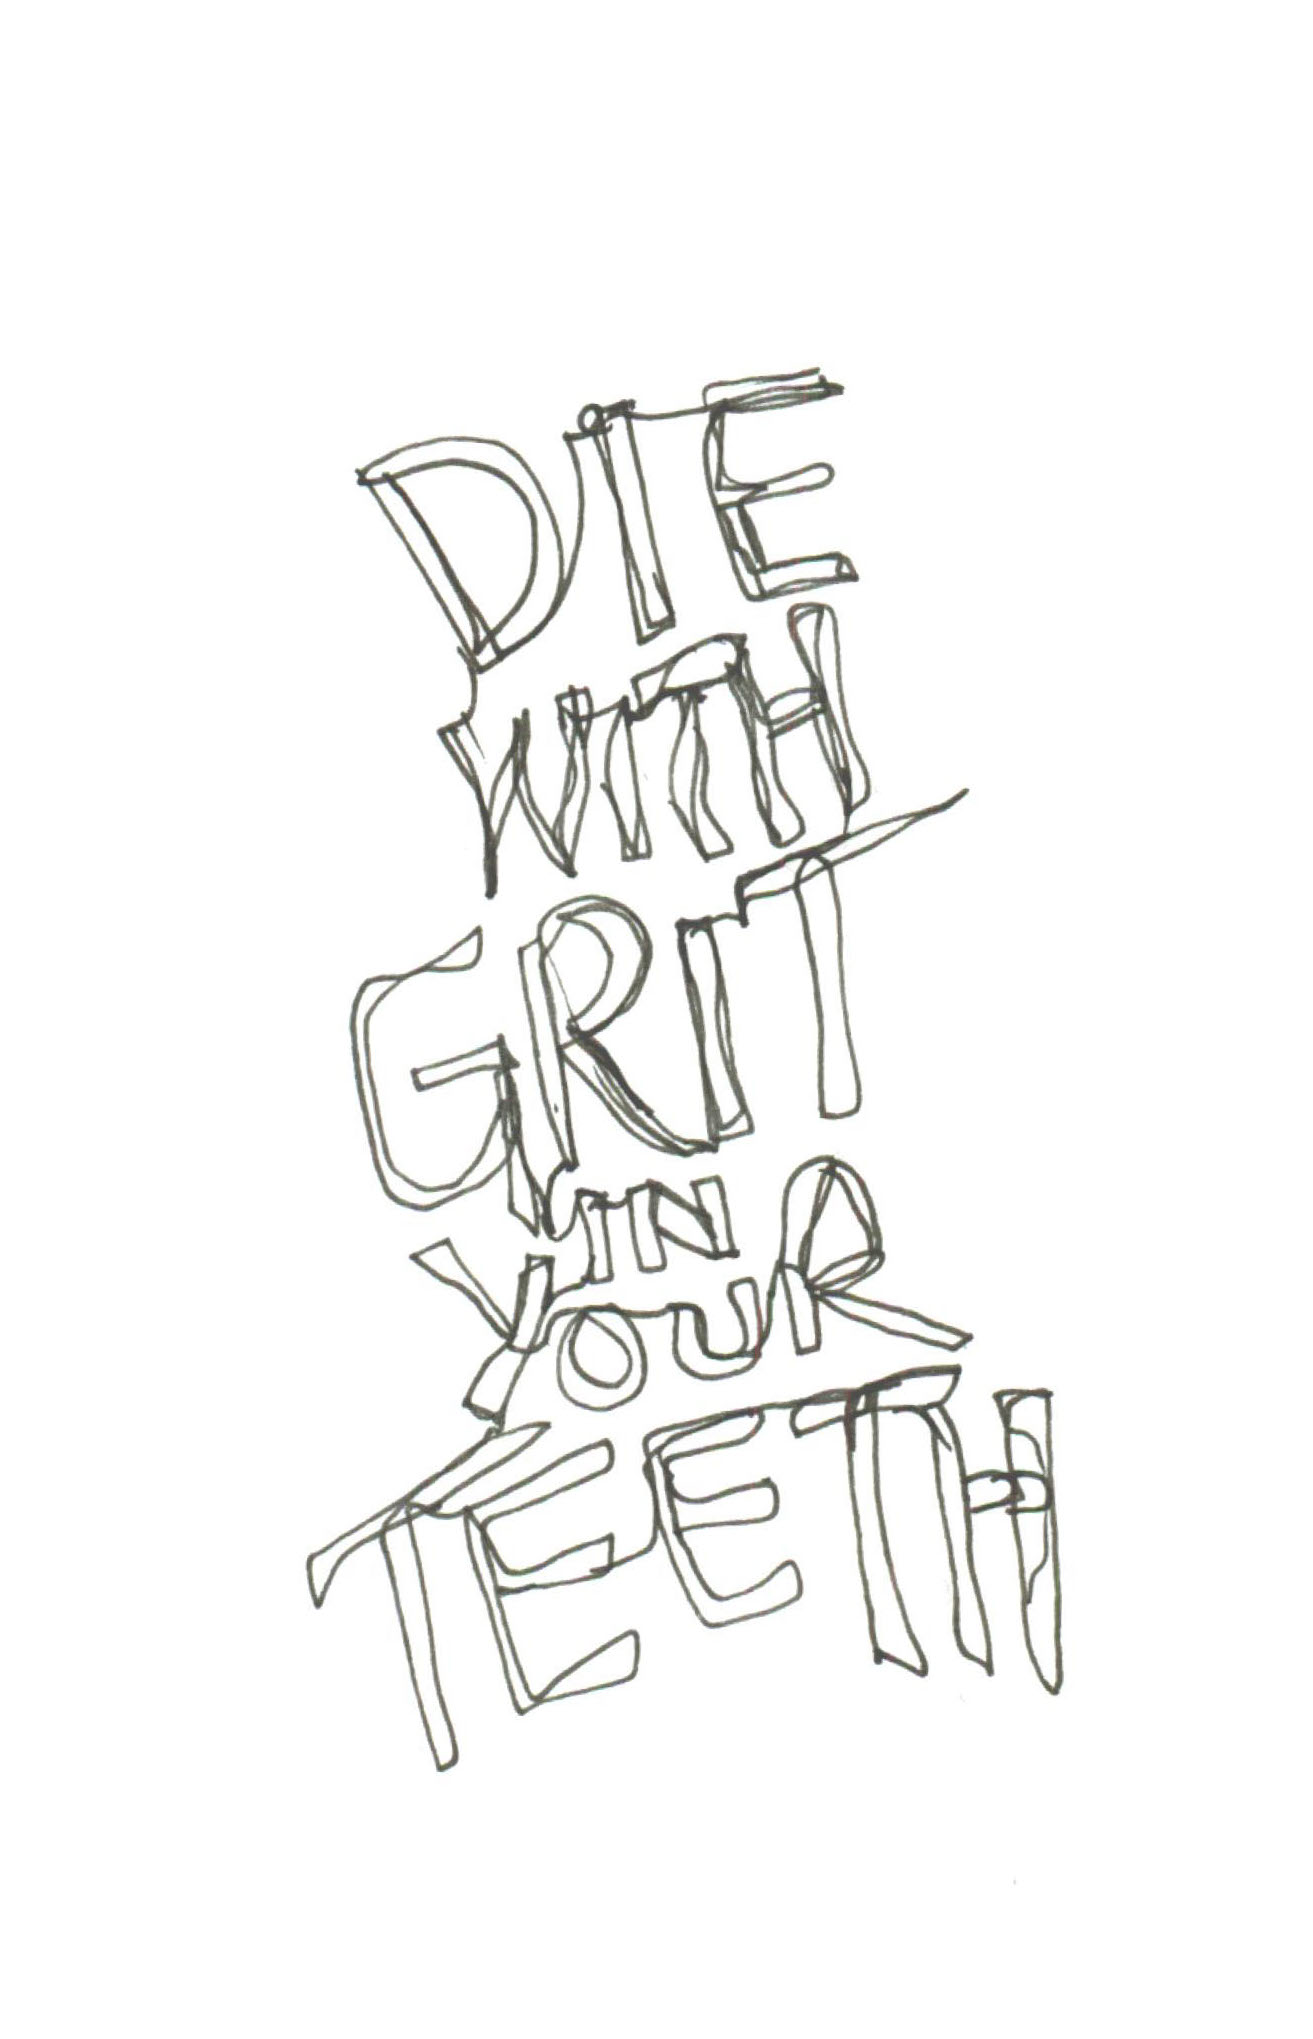 DIE
WITH
GRIT
IN
YOUR
TEETH